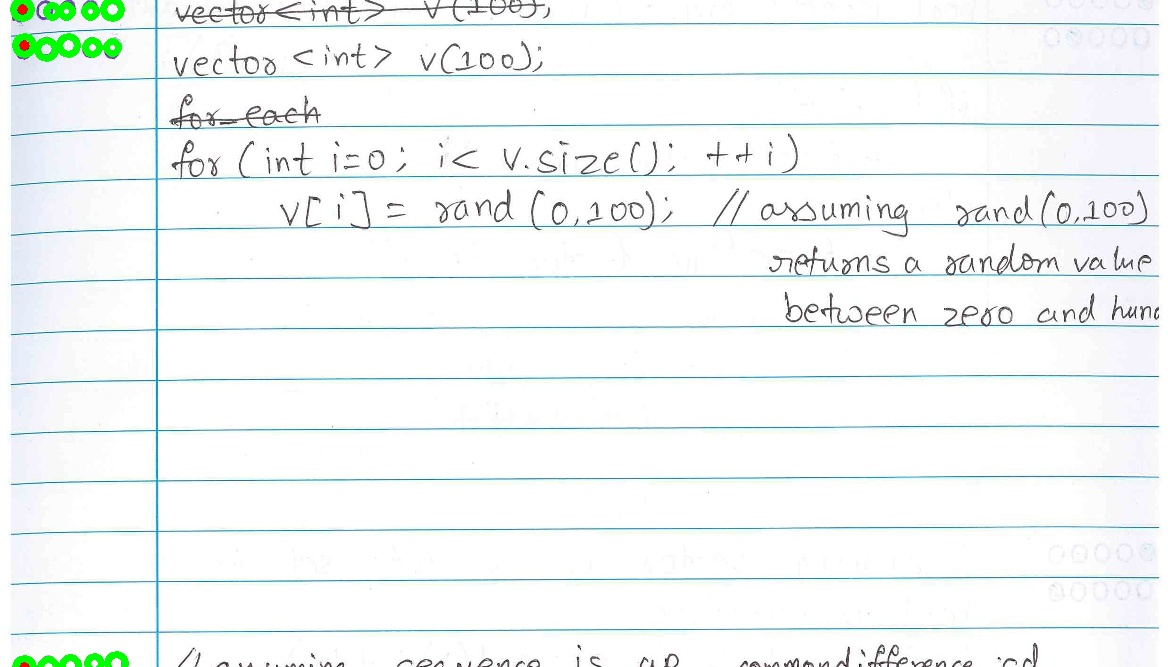 vector<int> v(100);
vector <int> v(100);
for_each
for (int i=0; i< v.size(); ++i)
v[i] = rand (0,100); // assuming rand(0,100)
returns a random value
between zero and
// assuming sequence is